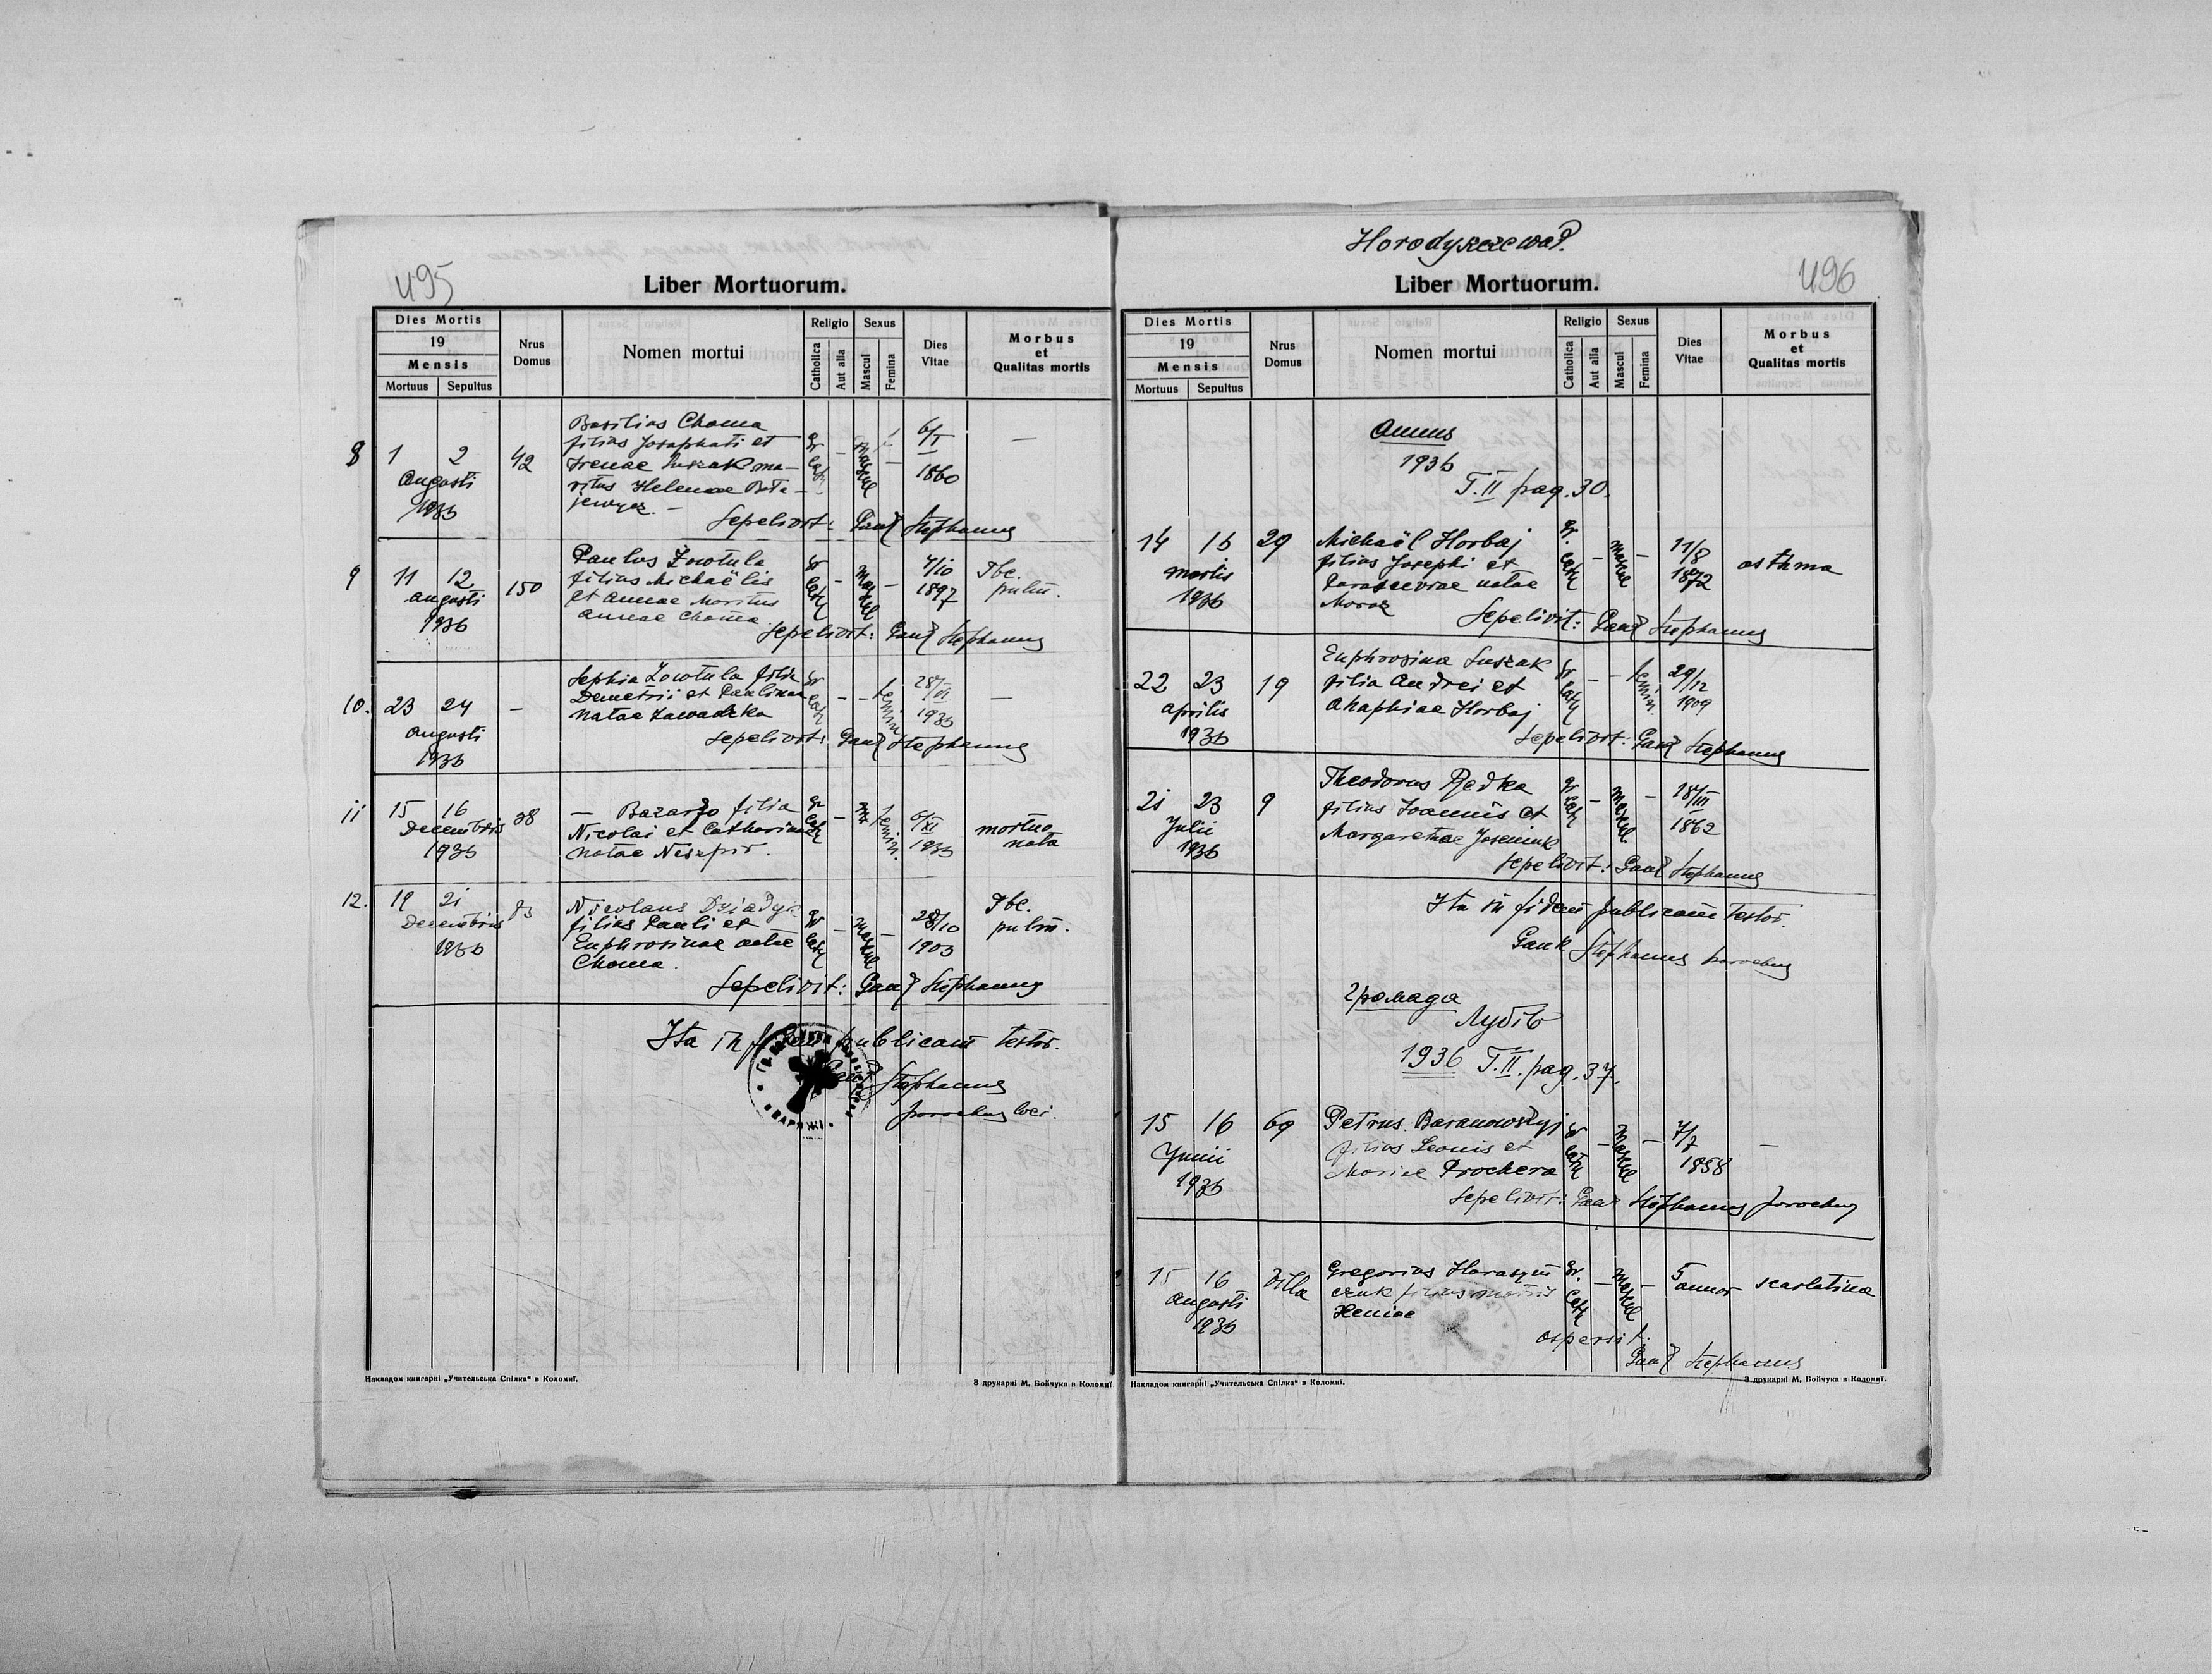 495
Liber Mortuorum.
Dies Mortis
19
Mensis
Mortuus Sepultus
Nrus Domus
Nomen mortui
Religio
Catholica
Aut alia
Sexus
Mascul
Femina
Dies Vitae
Morbus et Qualitas mortis
8 1 2 42 Basilius Choma gr 6/I —
Augusti filius Josaphati et cath
1936 Irenae Suszak ma- mascul 1860
ritus Helenae
Sepelivit: Gauk Stephanus
9 11 12 150 Paulus Zowtula gr 4/10 Tbc.
Augusti filius Michaëlis cath — mascul — 1897 pulm.
1936 et Annae Maritus
Annae Choma
Sepelivit: Gauk Stephanus
10. 23 24 — Sophia Zowtula filia gr 28/VI —
Augusti Demetrii et Paulinae cath — — femin. 1936
1936 natae Zawadzka
Sepelivit: Gauk Stephanus
11 15 16 38 — Bazarko filia gr
Decembris Nicolai et Catharinae cath — femin. XI mortuo
1936 natae 1936 nata
12. 19 21 Nicolaus Dziadyk gr 28/10 Tbc.
Decembris filius Pauli et cath — mascul — 1903 pulm.
1936 Euphrosinae natae
Choma.
Sepelivit: Gauk Stephanus
Ita in fidem publicam testor.
Gauk Stephanus
parochus loci.
Накладом книгарні „Учительська Спілка“ в Коломиї.
З друкарні М. Бойчука в Коломиї.
496
Liber Mortuorum.
Dies Mortis
19
Mensis
Mortuus Sepultus
Nrus Domus
Nomen mortui
Religio
Catholica
Aut alia
Sexus
Mascul
Femina
Dies Vitae
Morbus et Qualitas mortis
Annus
1936
T. II pag. 30.
14 16 29 Michaël Horbaj gr. 11/8 asthma
Martis filius Josephi et cath — mascul — 1872
1936 Parasceviae natae
Moroz
Sepelivit: Gauk Stephanus
22 23 19 Euphrosina Suszak gr 29/12
Aprilis filia Andrei et cath — — femin. 1909
1936 Ahaphiae Horbaj
Sepelivit: Gauk Stephanus
21 23 9 Theodorus Redka gr 18/III
Julii filius Joannis et cath — mascul — 1862
1936 Margarethae
Sepelivit: Gauk Stephanus
Ita in fidem publicam testor.
Gauk Stephanus parochus
Громада
Лубів
1936 T. II. pag. 37.
15 16 69 Petrus Baranowskyj gr 7/7 —
Junii filius Leonis et cath — mascul — 1858
1936 Mariae Prochera
Sepelivit: Gauk Stephanus parochus
15 16 villa Gregorius Harasym gr. 5 scarlatina
Augusti czuk filius matris cath — mascul — annor
1936 Xeniae
aspersit.
Gauk Stephanus
Накладом книгарні „Учительська Спілка“ в Коломиї.
З друкарні М. Бойчука в Коломиї.